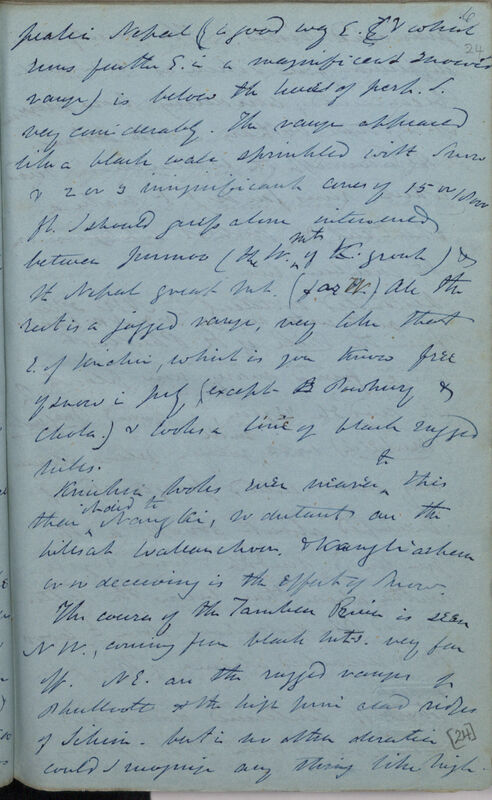 16
24
peak in Nepal (a good way E. of which
runs further E. is a magnificent snowy
range) is below the level of perp. S.
very considerably. The range appeared
like a black wall sprinkled with snow
& 2 or 3 insignificant cones of 15 or
ft. I should guess alone intervened
between Junnoo (the W. mt. of K. group) &
the Nepal great mt. (far W.) All the
rest is a jagged range, very like that
E. of Kinchin, which is you know free
of snow in July (except Powhunry &
Chola.) & looks a line of black rugged
hills.
Kinchin looks even nearer to this
than it did to Nanglki, so distant are the
hills at Wallanchoon & Kanglachem
or so deceiving is the effect of snow.
The course of the Tambur River is seen
N W., coming from black mts. very far
off. N E. are the rugged ranges of
Phulloot & the high pine clad ridges
of Sikkim. but in no other direction
could I recognise any thing like high
[24]